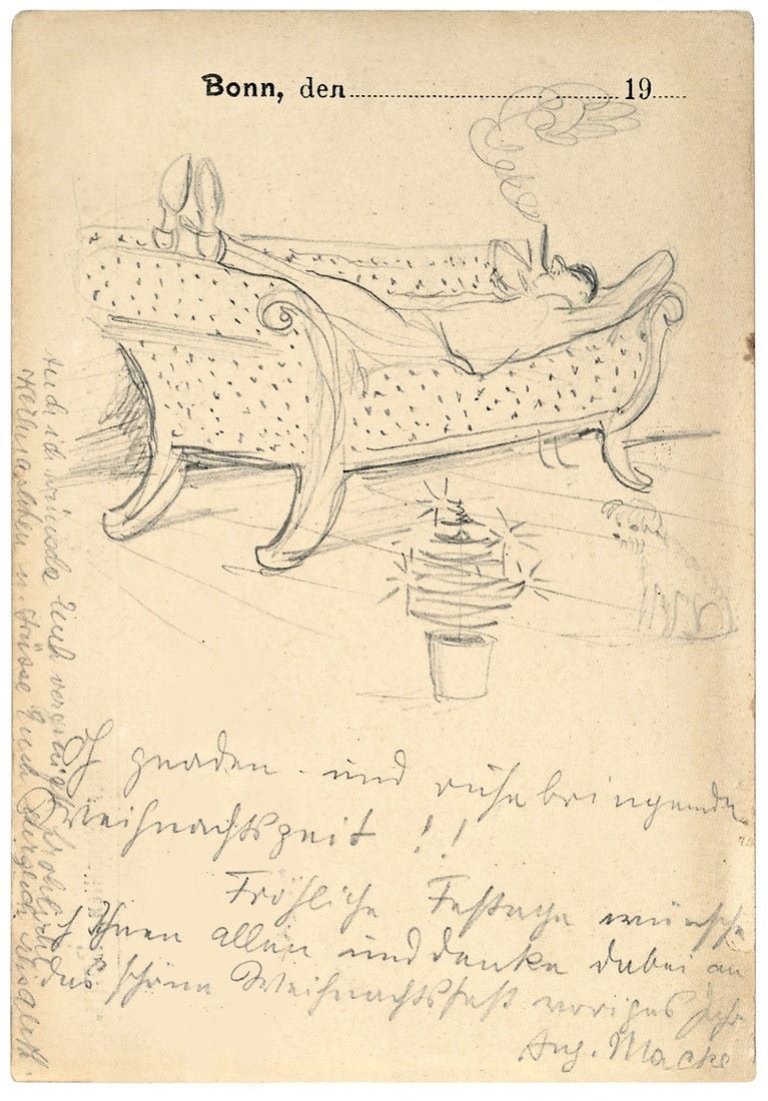 Bonn, den 19
gnaden- und ruhebringende
Weihnachtszeit !!
Fröhliche Festtage wünsche
ich Ihnen allen und denke dabei an
das schöne Weihnachtsfest voriges Jahr
Aug. Macke
Auch ich wünsche Euch vergnügte fröhliche
Weihnachten u. grüsse Euch herzlich Elisabeth.